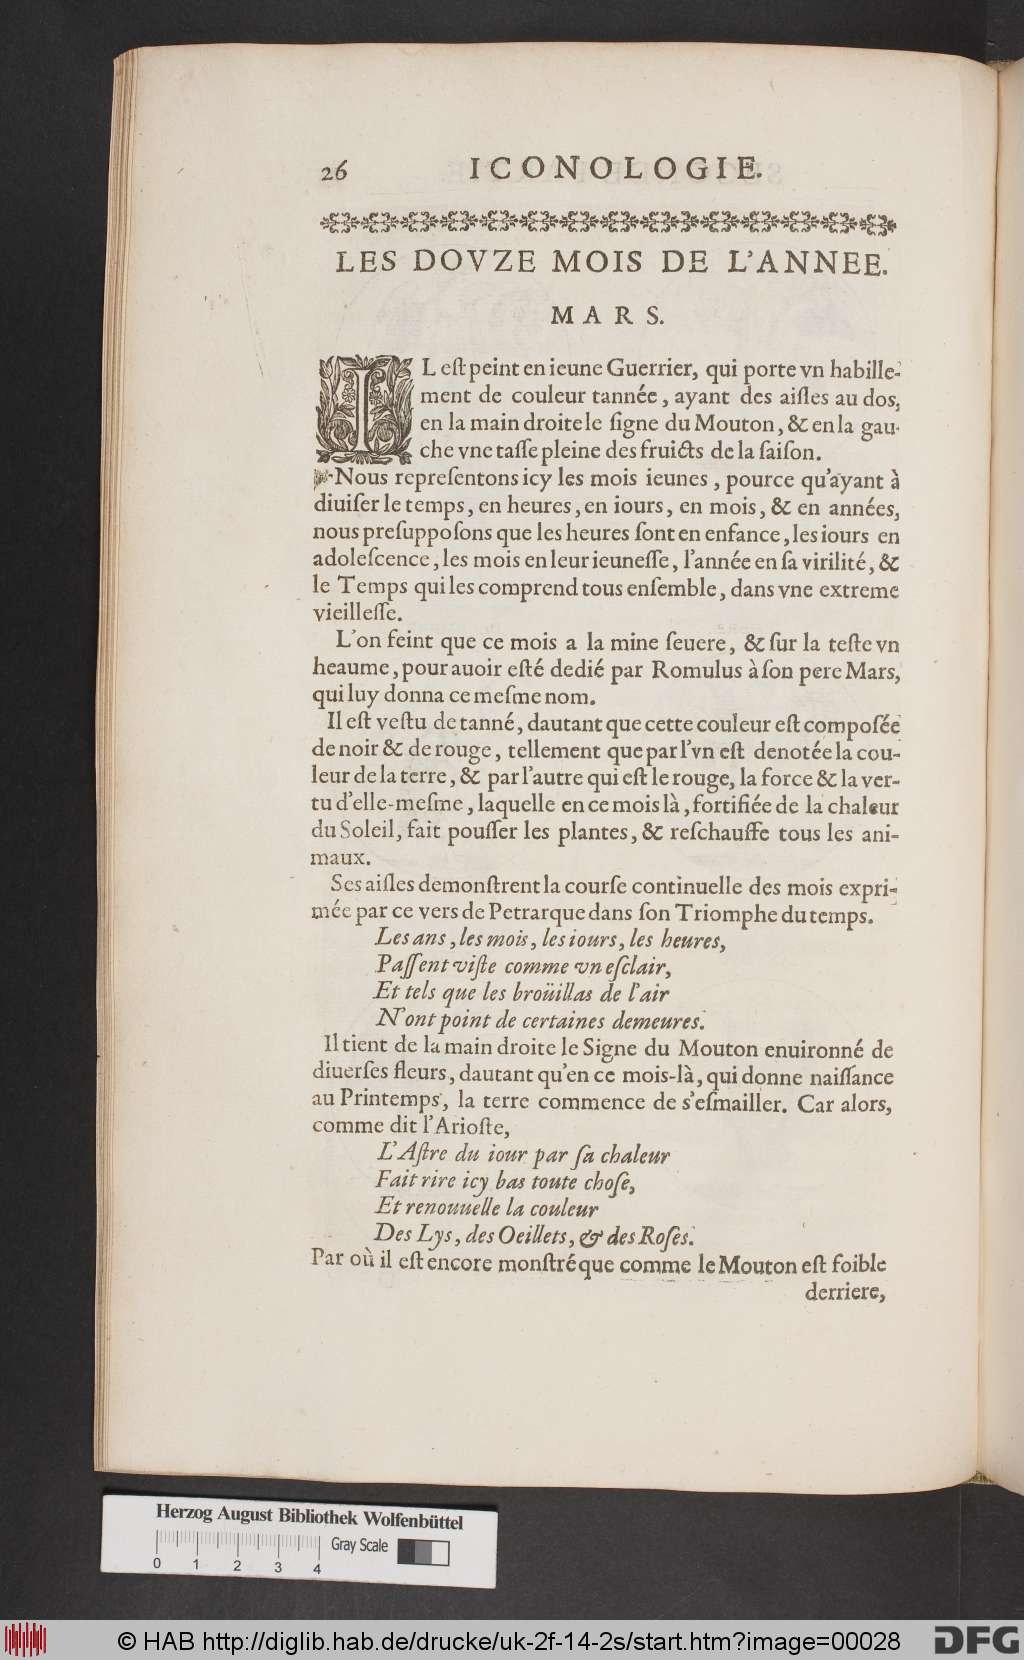 26 ICONOLOGIE.
LES DOVZE MOIS DE L'ANNEE.
MARS.
IL eſt peint en ieune Guerrier, qui porte vn habille-
ment de couleur tannée, ayant des aiſles au dos,
en la main droite le ſigne du Mouton, & en la gau-
che vne taſſe pleine des fruicts de la ſaiſon.
Nous repreſentons icy les mois ieunes, pource qu'ayant à
diuiſer le temps, en heures, en iours, en mois, & en années,
nous preſuppoſons que les heures ſont en enfance, les iours en
adoleſcence, les mois en leur ieuneſſe, l'année en ſa virilité, &
le Temps qui les comprend tous enſemble, dans vne extreme
vieilleſſe.
L'on feint que ce mois a la mine ſeuere, & ſur la teſte vn
heaume, pour auoir eſté dedié par Romulus à ſon pere Mars,
qui luy donna ce meſme nom.
Il eſt veſtu de tanné, dautant que cette couleur eſt compoſée
de noir & de rouge, tellement que par l'vn eſt denotée la cou-
leur de la terre, & par l'autre qui eſt le rouge, la force & la ver-
tu d'elle-meſme, laquelle en ce mois là, fortifiée de la chaleur
du Soleil, fait pouſſer les plantes, & reſchauffe tous les ani-
maux.
Ses aiſles demonſtrent la courſe continuelle des mois expri-
mée par ce vers de Petrarque dans ſon Triomphe du temps.
Les ans, les mois, les iours, les heures,
Paſſent viſte comme vn eſclair,
Et tels que les broüillas de l'air
N'ont point de certaines demeures.
Il tient de la main droite le Signe du Mouton enuironné de
diuerſes fleurs, dautant qu'en ce mois-là, qui donne naiſſance
au Printemps, la terre commence de s'eſmailler. Car alors,
comme dit l'Arioſte,
L'Aſtre du iour par ſa chaleur
Fait rire icy bas toute choſe,
Et renouuelle la couleur
Des Lys, des Oeillets, & des Roſes.
Par où il eſt encore monſtré que comme le Mouton eſt foible
derriere,
Herzog August Bibliothek Wolfenbüttel
Gray Scale
0 1 2 3 4
© HAB http://diglib.hab.de/drucke/uk-2f-14-2s/start.htm?image=00028
DFG